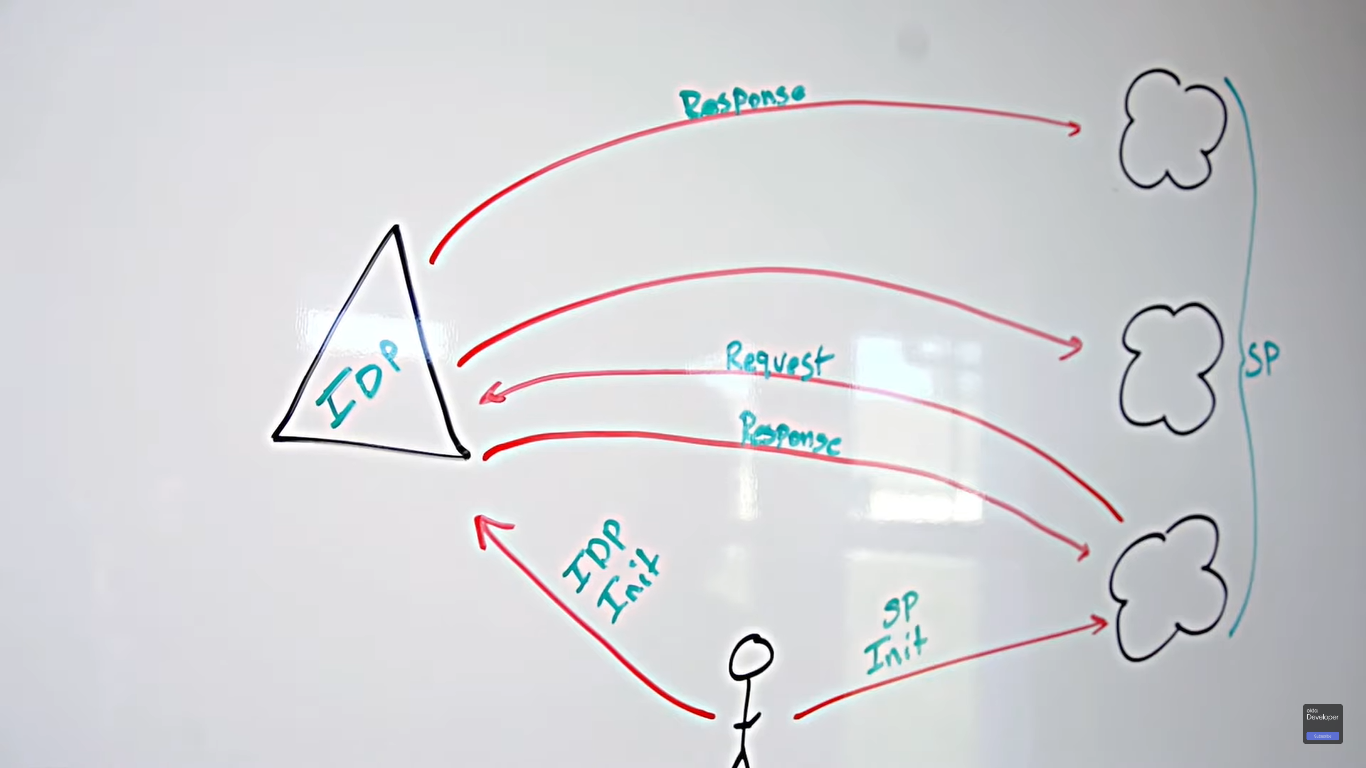 Response
IDP
Request
SP
Response
IDP
Init
SP
Init
okta
Developer
Subscribe